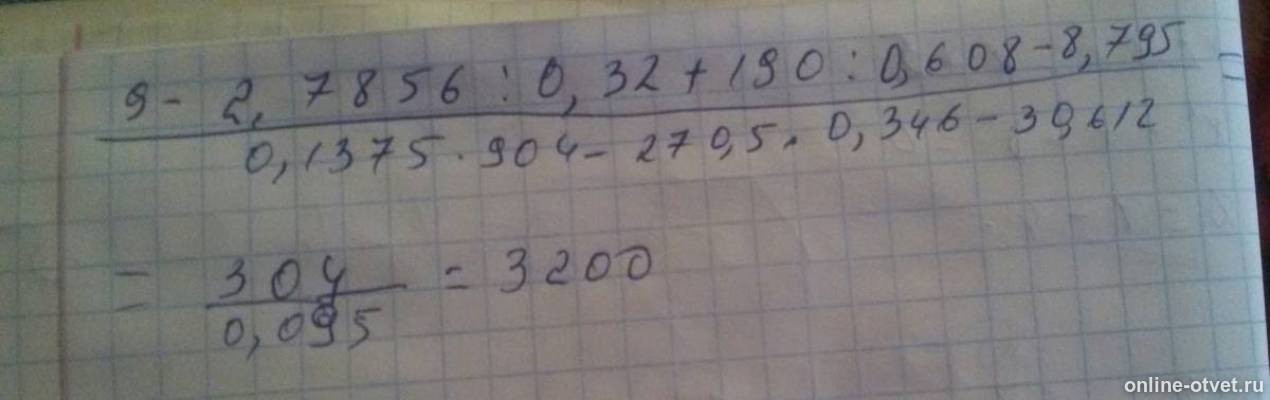 9 - 2,7856 : 0,32 + 190 : 0,608 - 8,795 =
0,1375 · 904 - 270,5 · 0,346 - 30,612
= 304 = 3200
0,095
online-otvet.ru